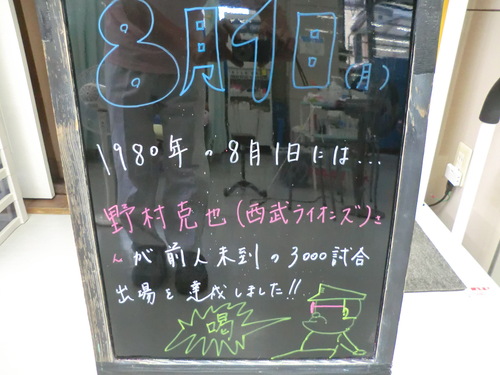 8月1日(月)
1980年の8月1日には...
野村克也(西武ライオンズ)さ
んが前人未到の3000試合
出場を達成しました!!
喝